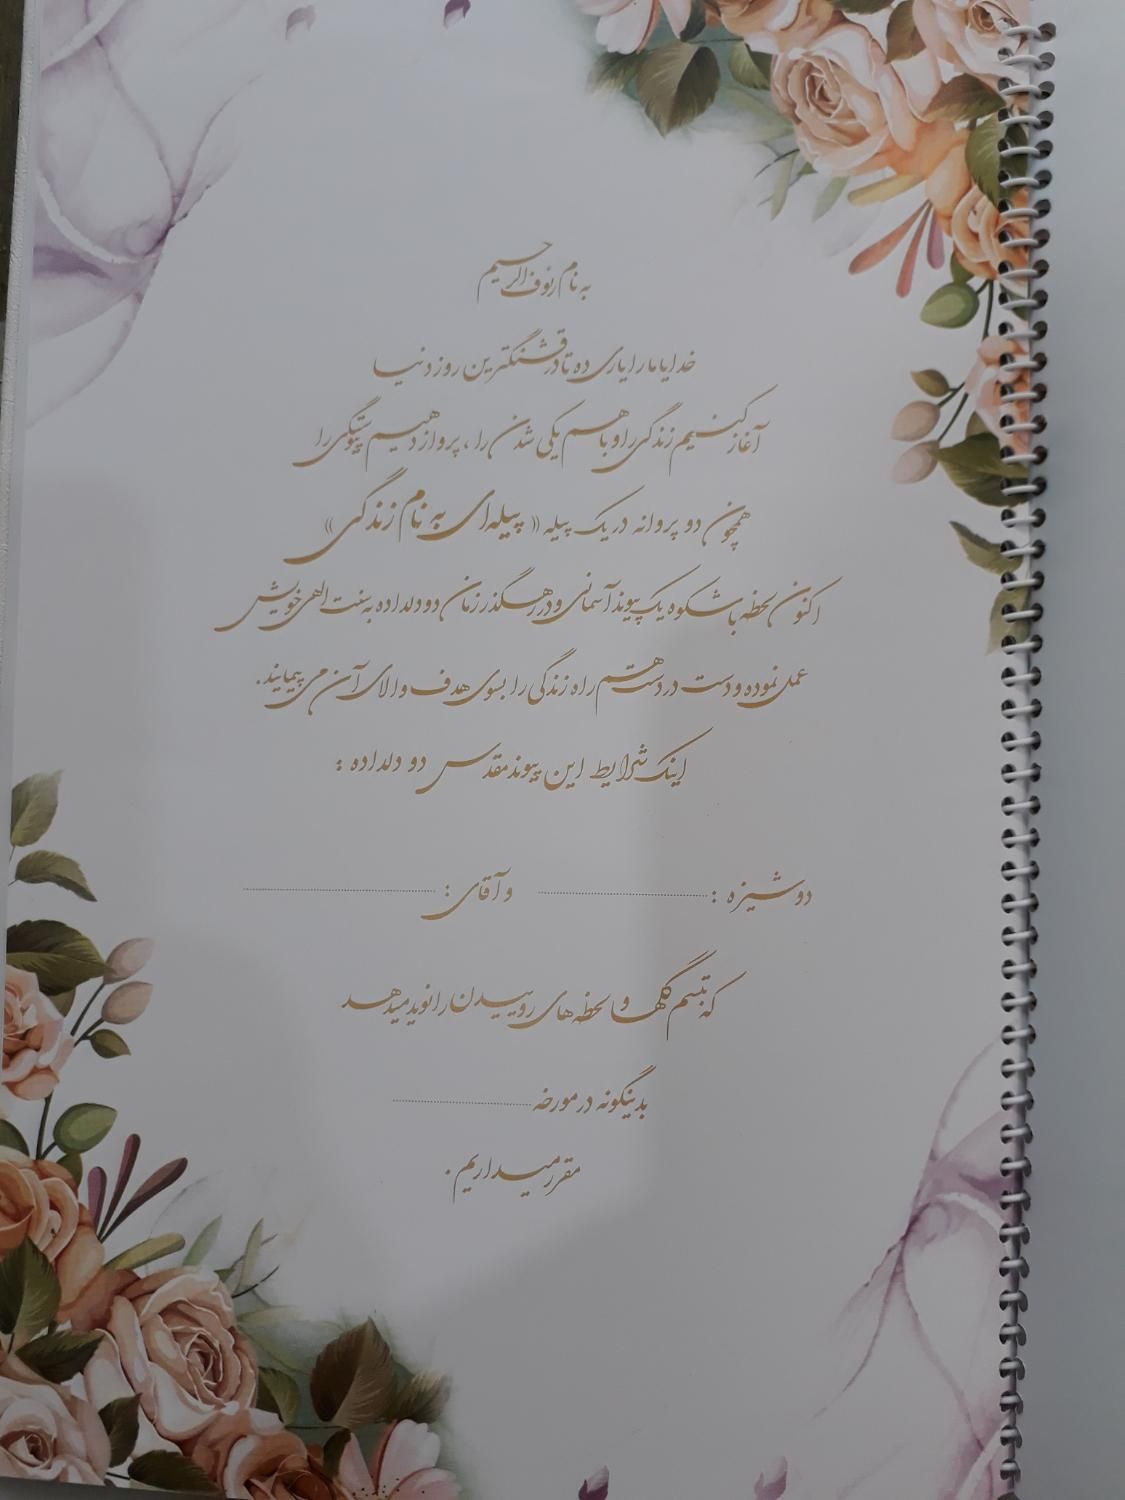 به نام رئوف الرحیم
خدایا ما را یاری ده تا در قشنگترین روز دنیا
آغاز کنیم زندگی را و با هم یکی شدن را ، پرواز دهیم پیوستگی را
همچون دو پروانه در یک پیله « پیله‌ای به نام زندگی »
اکنون لحظه با شکوه یک پیوند آسمانی و در رهگذر زمان دو دلداده به سنت الهی خویش
عمل نموده و دست در دست هم راه زندگی را بسوی هدف والای آن می پیمایند.
اینک شرایط این پیوند مقدس دو دلداده :
دوشیزه : .................... و آقای : ....................
که تبسم گلها و لحظه های روییدن را نوید میدهد
بدینگونه در مورخه ....................
مقرر میداریم .